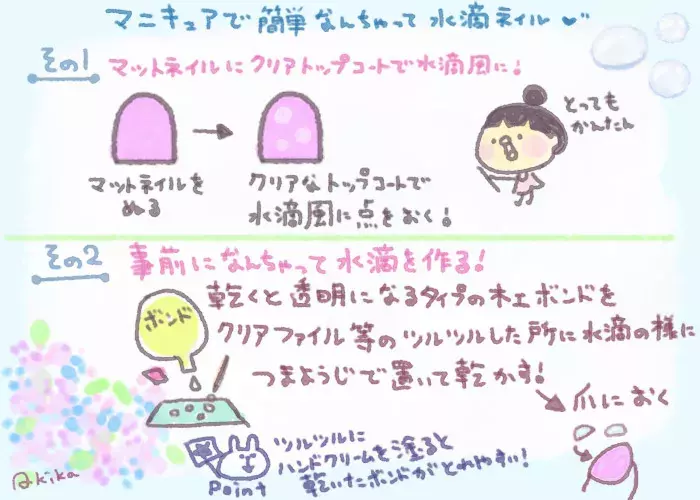 マニキュアで簡単なんちゃって水滴ネイル
その1
マットネイルにクリアトップコートで水滴風に!
とっても
かんたん
マットネイルを
ぬる
クリアなトップコートで
水滴風に点をおく!
その2
事前になんちゃって水滴を作る!
ボンド
乾くと透明になるタイプの木工ボンドを
クリアファイル等のツルツルした所に水滴の様に
つまようじで置いて乾かす!
爪におく
ツルツルに
ハンドクリームを塗ると
乾いたボンドがとれやすい!
Point
@kika